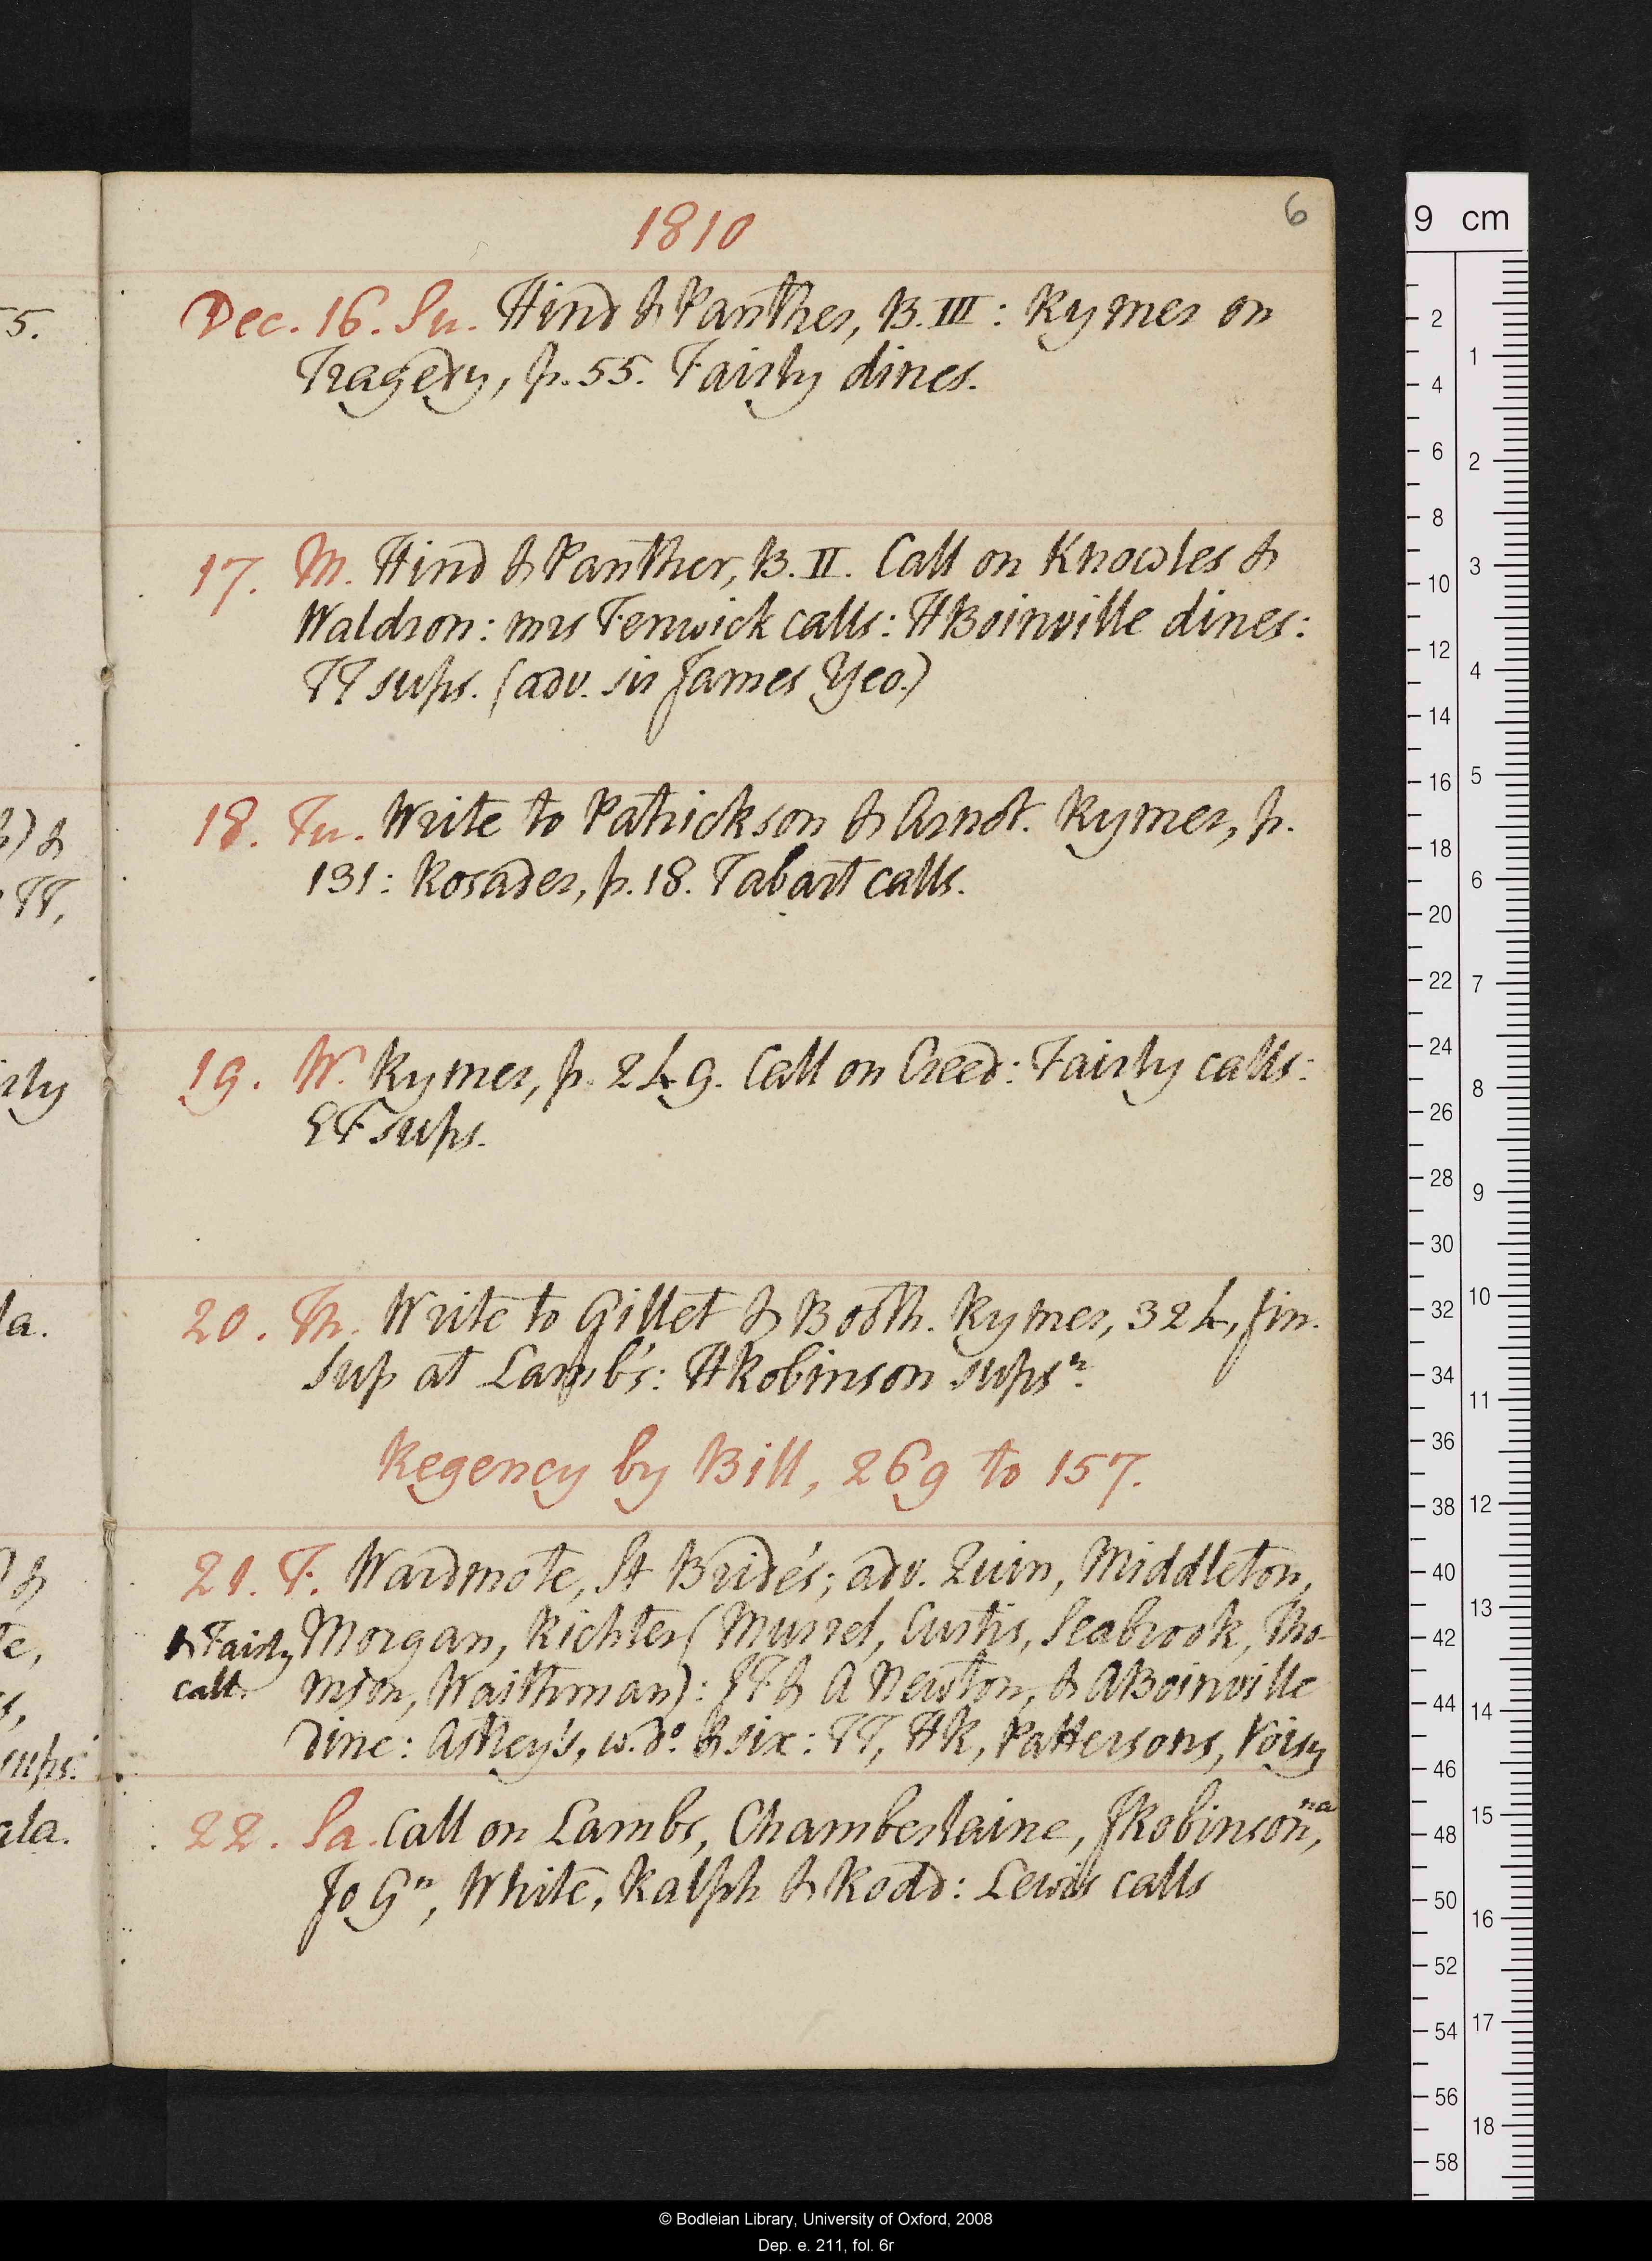 1810
6
Dec. 16. Su. Hind & Panther, B. III: Rymer on
Tragedy, p. 55. Fairly dines.
17. M. Hind & Panther, B. II. Call on Knowles &
Waldron: mrs Fenwick calls: H Boinville dines:
TT sups. (adv. sir James Yeo.)
18. Tu. Write to Patrickson & Arnot. Rymer, p.
131: Rosader, p. 18. Tabart calls.
19. W. Rymer, p. 249. Call on Creed: Fairly calls:
EF sups.
20. Th. Write to Gillet & Booth. Rymer, 324, fin.
Sup at Lamb's: H Robinson sups n.
Regency by Bill, 269 to 157.
21. F. Wardmote, St Bride's; adv. Quin, Middleton,
Morgan, Richter (Murrel, Curtis, Seabrook, Tho-
& Fairly
call.
mson, Waithman): JF & A Newton, & A Boinville
dine: Astley's, w. do. & six: TT, HR, Pattersons, Voisy
22. Sa. Call on Lambs, Chamberlaine, J Robinson, na
Jo Gn, White, Ralph & Rodd: Lewis calls
55.
TT,
la.
sups.
ala.
9 cm
2
4
6
8
10
12
14
16
18
20
22
24
26
28
30
32
34
36
38
40
42
44
46
48
50
52
54
56
58
1
2
3
4
5
6
7
8
9
10
11
12
13
14
15
16
17
18
© Bodleian Library, University of Oxford, 2008
Dep. e. 211, fol. 6r